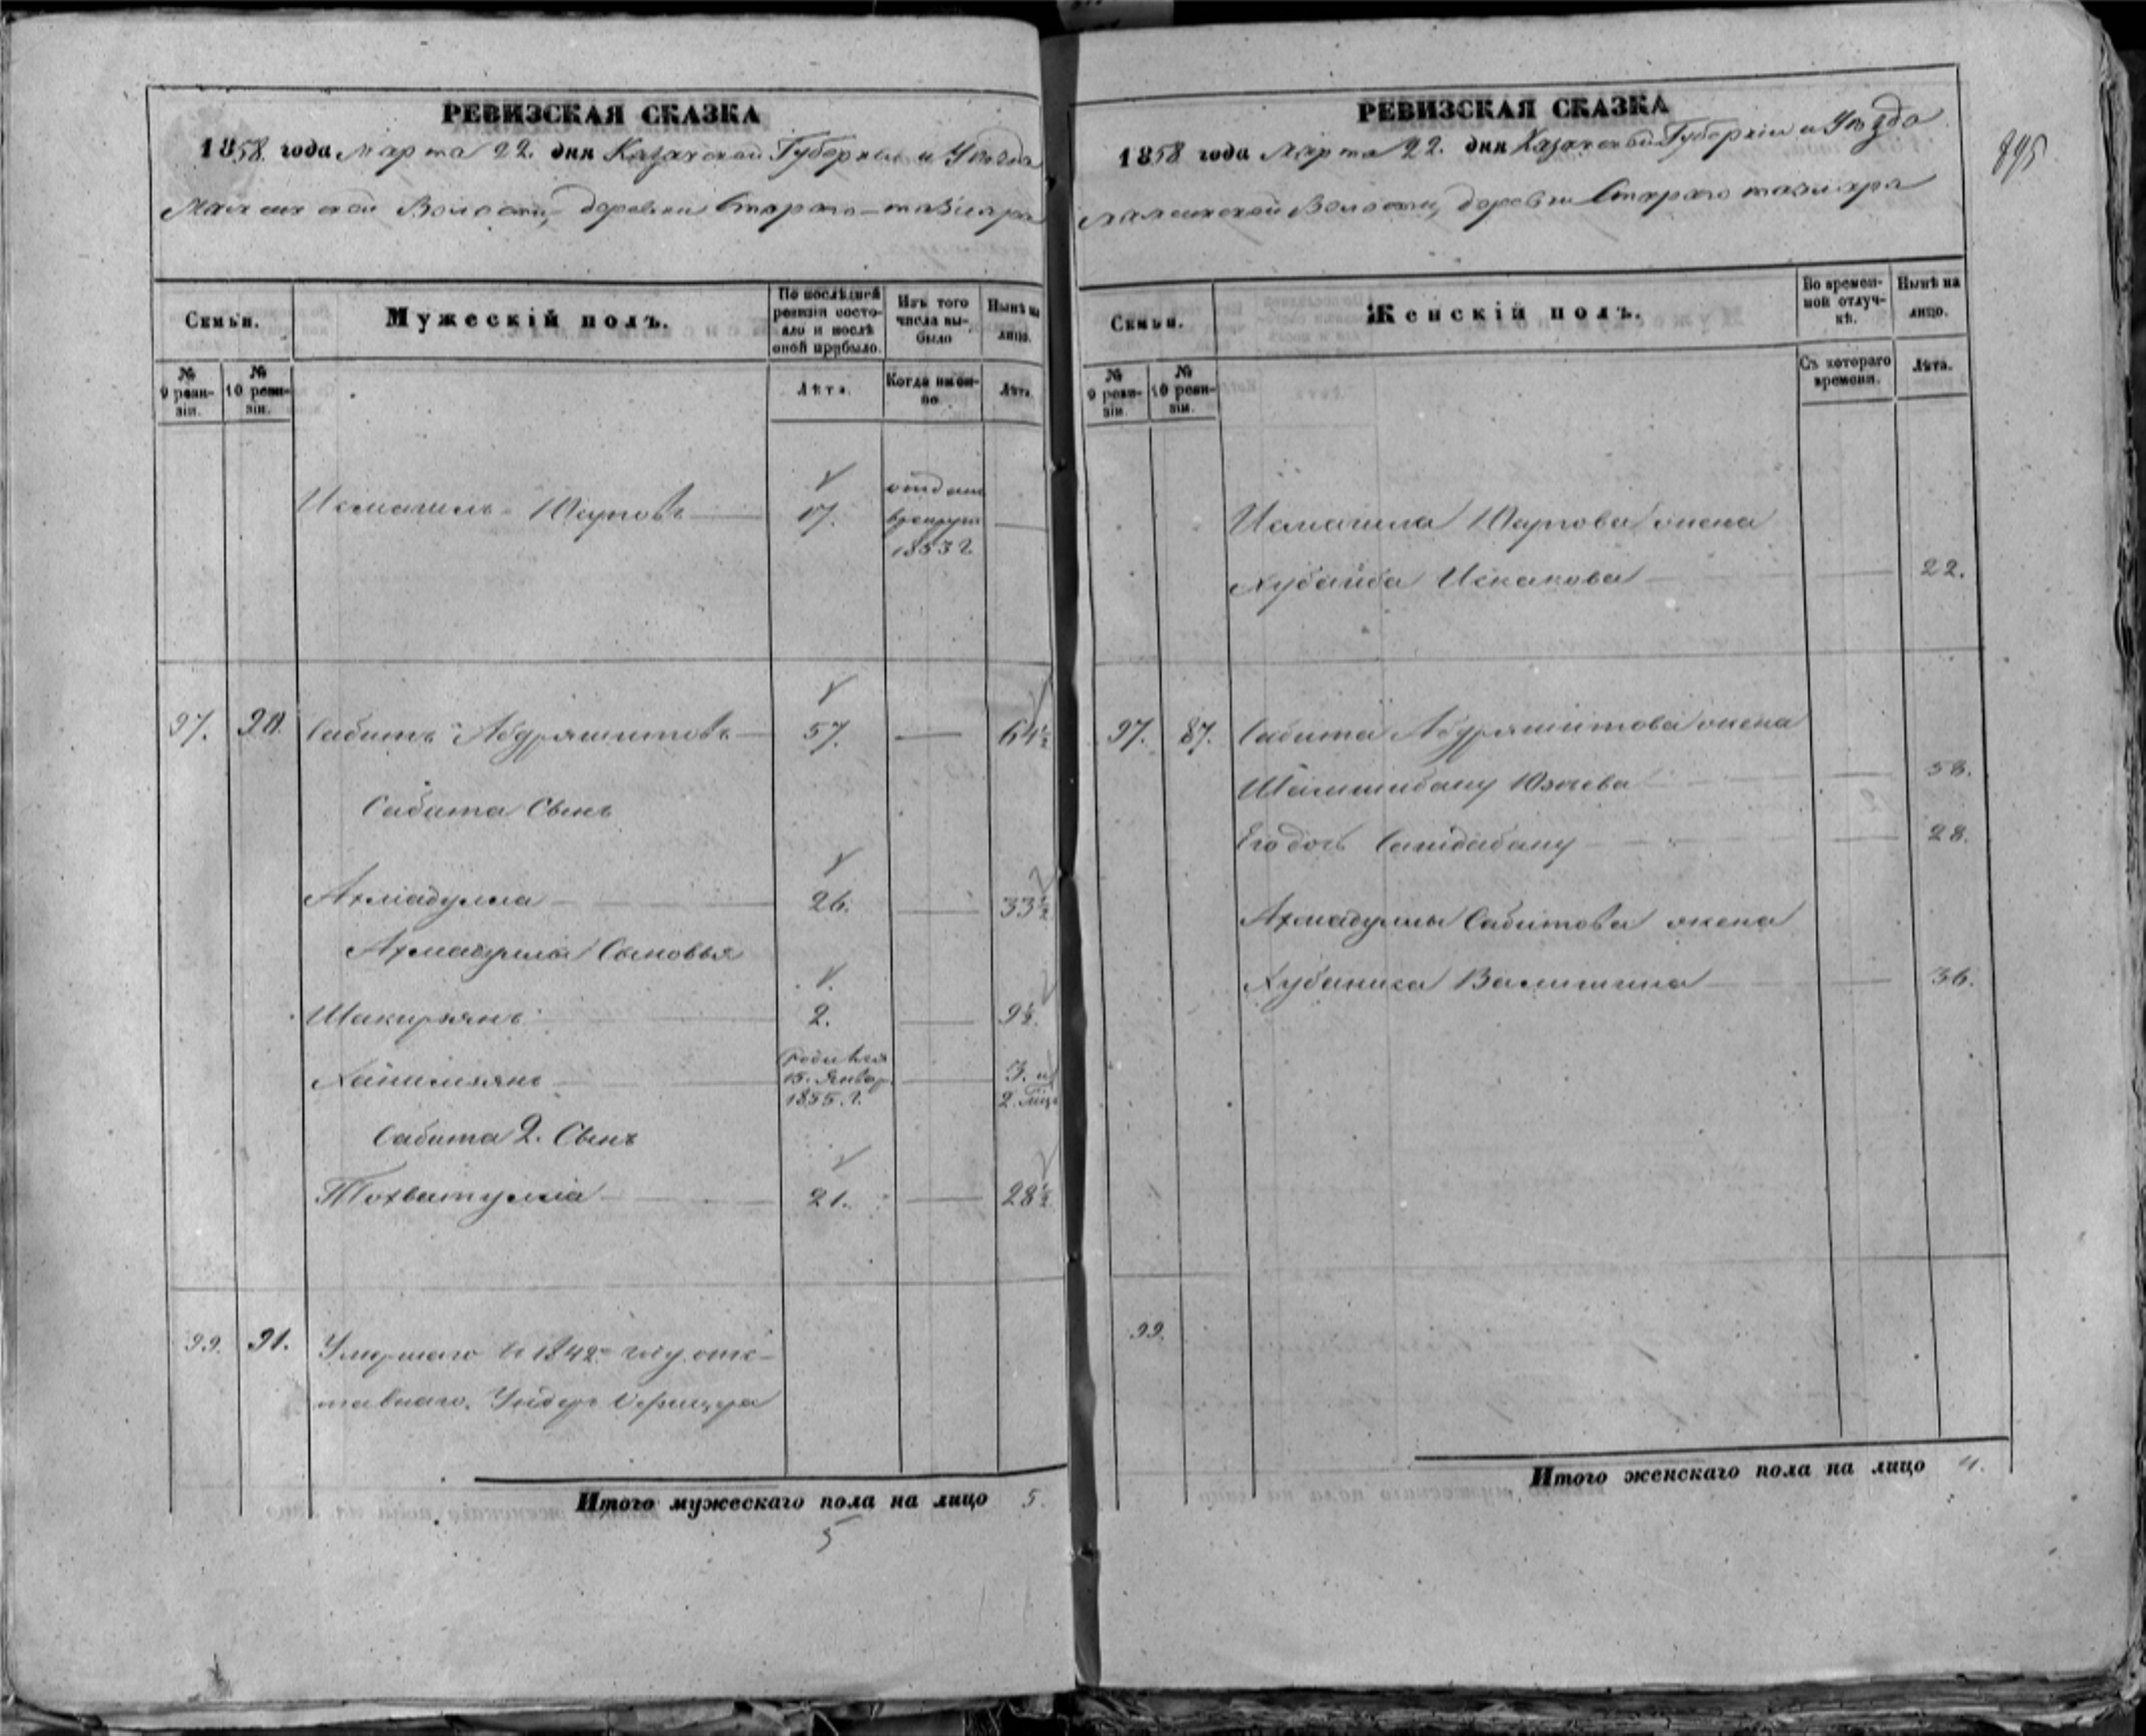 РЕВИЗСКАЯ СКАЗКА
1858 года Марта 22. дня Казанской Губерніи и Уѣзда
волости, деревни Стараго
Семьи.
Мужескій полъ.
По послѣдней ревизіи состояло и послѣ оной прибыло.
Изъ того числа выбыло
Нынѣ на лицо.
№ 9 ревизіи.
№ 10 ревизіи.
Лѣта.
Когда именно
Лѣта.
Исмагилъ Юсуповъ 17. отданъ в рекруты 1853 г.
97. 90. Сабитъ Абдряшитовъ 57. 64½
Сабита Сынъ
Ахмадулла 26. 33½
Ахмадуллы Сыновья
Шакирзянъ 2. 9½.
родился 15. Январ. 1855. г. 3. и 2. мѣц.
Сабита 2. Сынъ
Тохватулла 21. 28½
99. 91. Умершаго в 1842. году отс-
тавнаго. Ундеръ Офицера
Итого мужескаго пола на лицо 5.
5
РЕВИЗСКАЯ СКАЗКА
1858 года Марта 22. дня Казанской Губерніи и Уѣзда
895
Волости, деревни Стараго
Семьи.
Женскій полъ.
Во временной отлучкѣ.
Нынѣ на лицо.
№ 9 ревизіи.
№ 10 ревизіи.
Съ котораго времени.
Лѣта.
Исмагила жена
Хубайба Искакова 22.
97. 87. Сабита Абдряшитова жена
58.
Его дочь 28.
Ахмадуллы Сабитова жена
36.
99.
Итого женскаго пола на лицо 4.